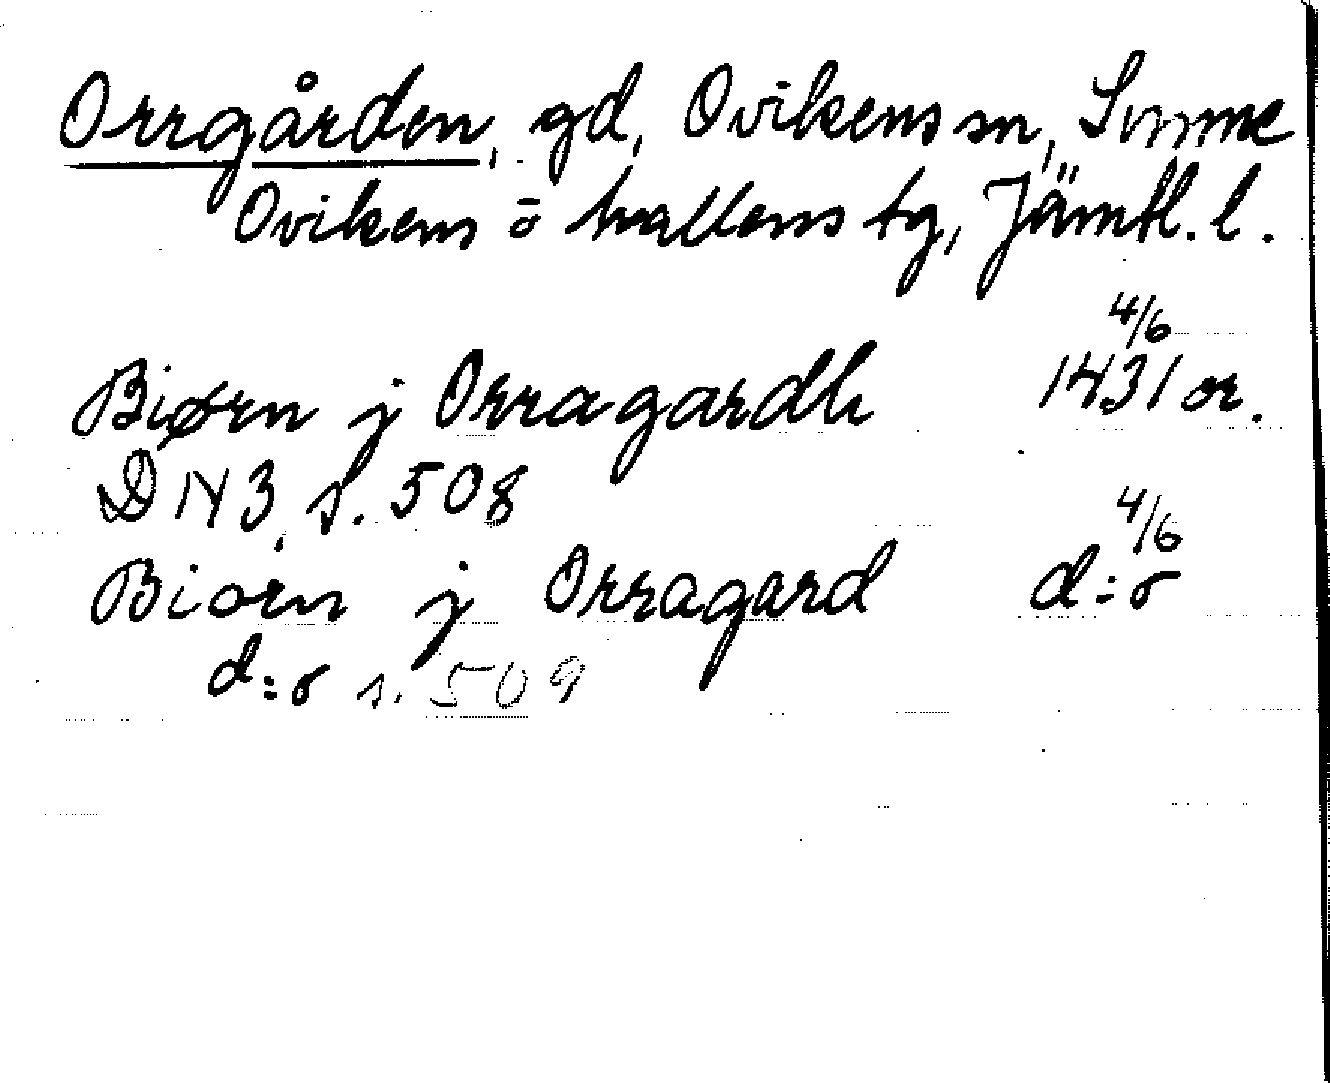 Orrgården, gd, Ovikens sn, Sunne
Ovikens o hallens tg, Jämtl. l.
4/6
Biørn j Orragardh 1431 or.
DN 3, s. 508
4/6
Biorn j Orragard d:o
d:o s. 509